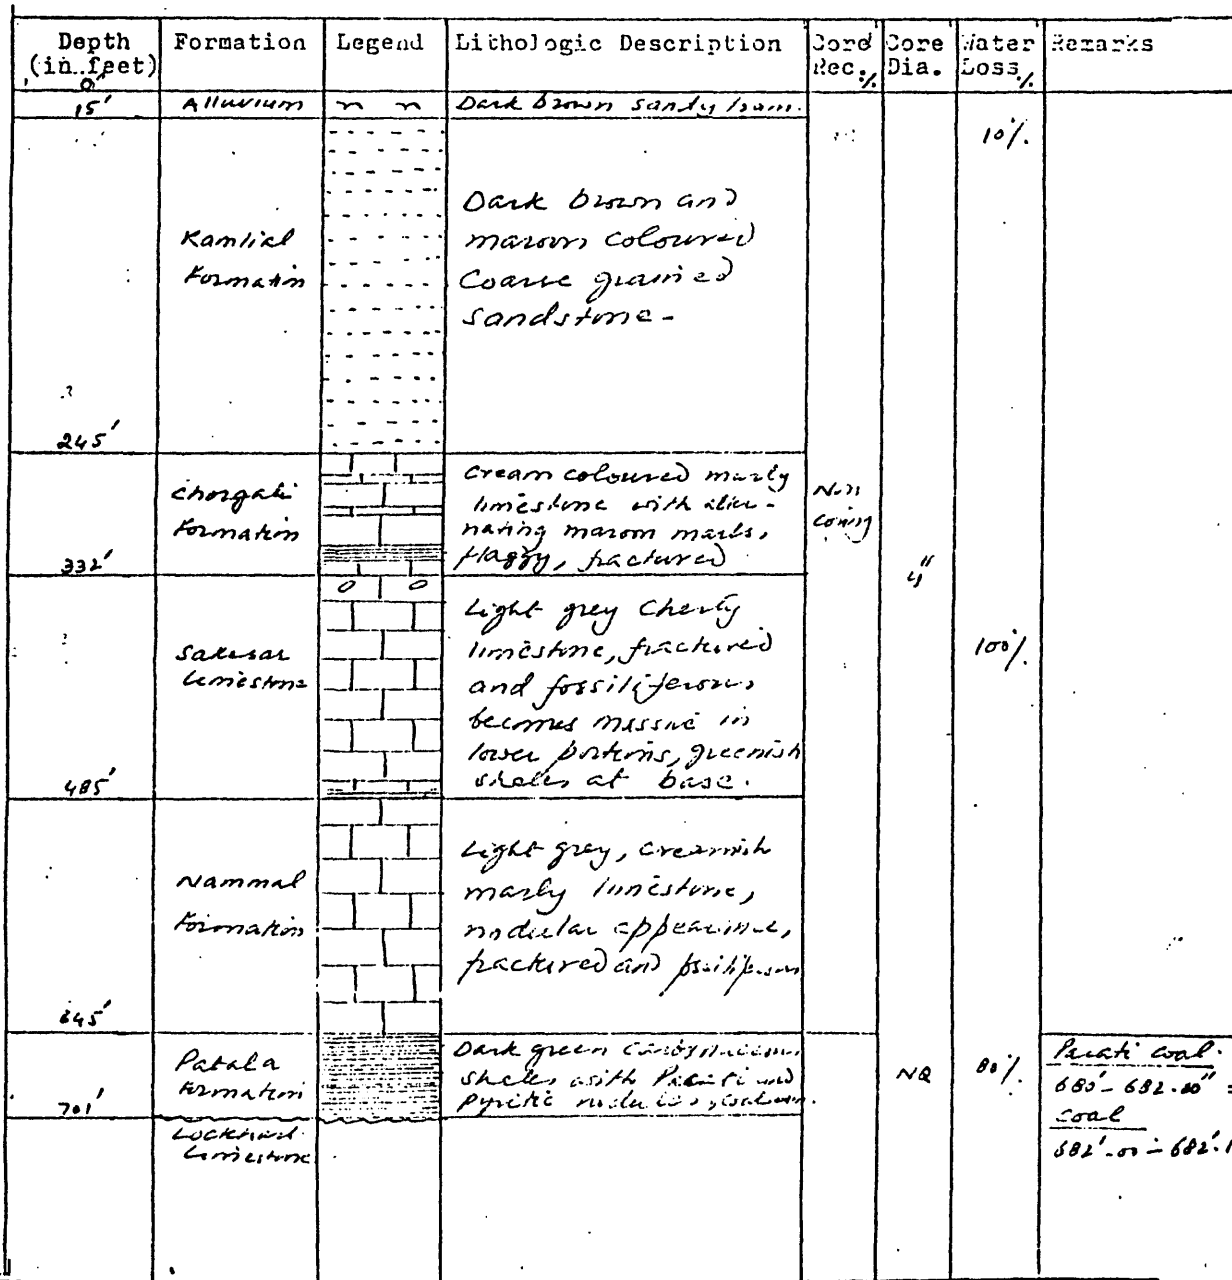 Depth Formation Legend Lithologic Description Core Core Water Remarks
(in feet) Rec.% Dia. Loss%
0'
15' Alluvium Dark brown sandy loam.
10%
Kamlial
Formation
Dark brown and
maroon coloured
Coarse grained
sandstone-
245'
Chorgali
Formation
Cream coloured marly
limestone with alter-
nating maroon marls,
flaggy, fractured
Non
coring
332'
4"
Sakesar
Limestone
Light grey Cherty
limestone, fractured
and fossiliferous
becomes massive in
lower portions, greenish
shales at base.
100%
485'
Nammal
Formation
Light grey, creamish
marly limestone,
nodular appearance,
fractured and fossiliferous
645'
Patala
Formation
Dark green carbonaceous
shales with and
pyritic nodules,
NQ
80%
coal.
680'-682.00" =
coal
682'-00-682'.1
701'
Lockhart
Limestone